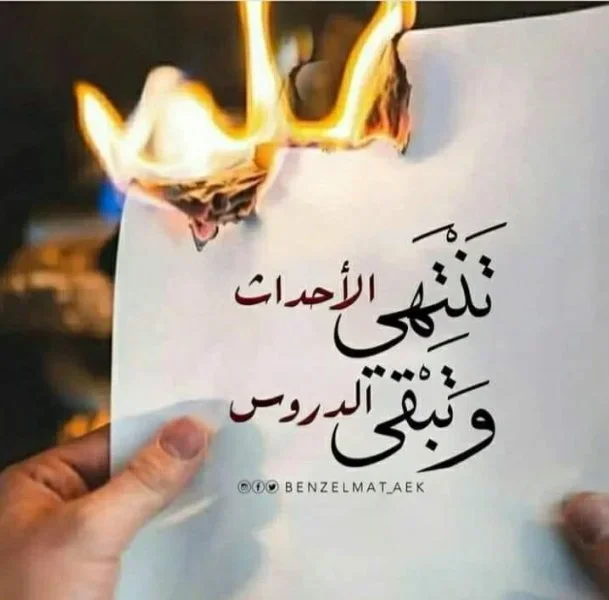 تَنْتَهِي الأحداث
وَتَبْقى الدروس
BENZELMAT_AEK